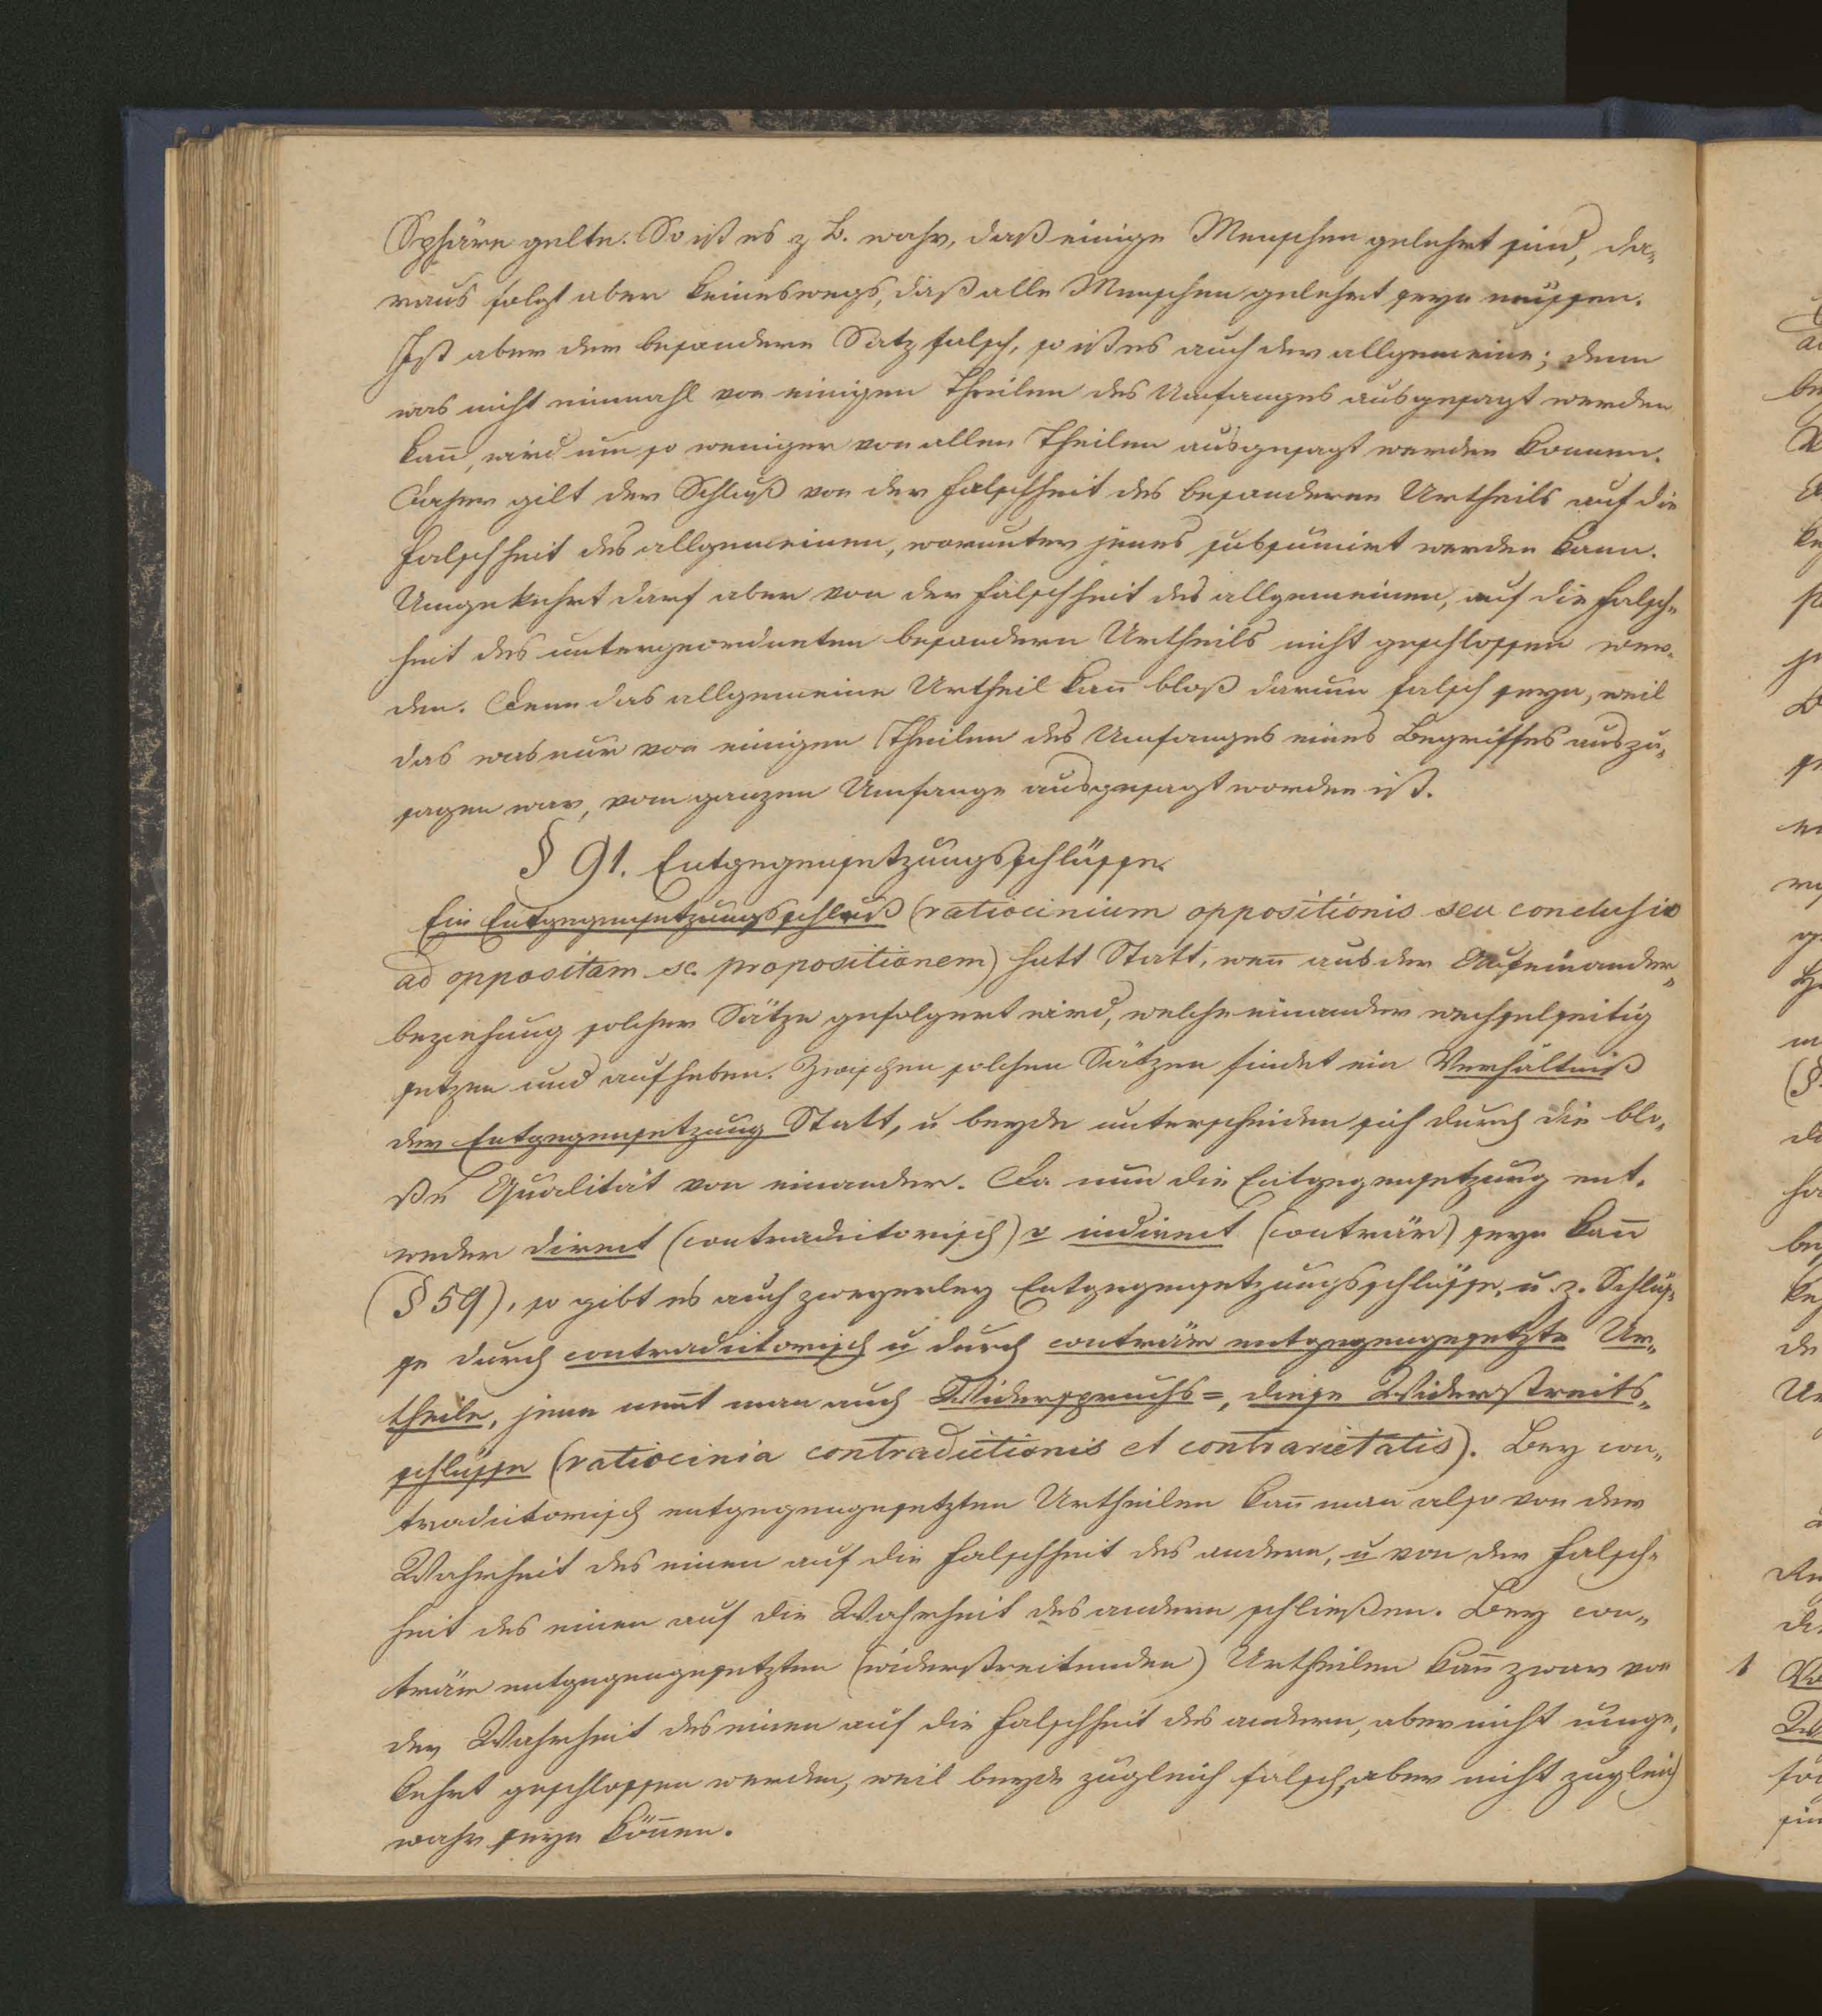 Sphäre gelte. So ist es z B. wahr, daß einige Menschen gelehrt sind, da-
raus folgt aber keineswegs, daß alle Menschen gelehrt seyn müssen.
Ist aber der besondere Satz falsch, so ist es auch der allgemeine; denn
was nicht einmahl von einigen Theilen des Umfanges ausgesagt werden
kan̄, wird um so weniger von allen Theilen ausgesagt werden können.
Daher gilt der Schluß von der Falschheit des besonderen Urtheils auf die
Falschheit des allgemeinen, worunter jenes subsumirt werden kann.
Umgekehrt darf aber von der Falschheit des allgemeinen, auf die Falsch-
heit des untergeordneten besondern Urtheils nicht geschlossen wer-
den. Denn das allgemeine Urtheil kan̄ bloß darum falsch seyn, weil
das was nur von einigen Theilen des Umfanges eines Begriffes auszu-
sagen war, vom ganzen Umfange ausgesagt worden ist.
§ 91. Entgegensetzungsschlüsse.
Ein Entgegensetzungsschluß (ratiocinium oppositionis seu conclusio
ad oppositam sc. propositionem) hatt Statt, wen̄ aus der Aufeinander-
beziehung solcher Sätze gefolgert wird, welche einander wechselseitig
setzen und aufheben. Zwischen solchen Sätzen findet ein Verhältniß
der Entgegensetzung Statt, u beyde unterscheiden sich durch die blo-
ße Qualität von einander. Da nun die Entgegensetzung ent-
weder direct (contradictorisch) o indirect (conträr) seyn kan̄
(§ 59), so gibt es auch zweyerley Entgegensetzungsschlüsse, u. z. Schlüs-
se durch contradictorisch u durch conträr entgegengesetzte Ur-
theile, jene nen̄t man auch Widerspruchs=, diese Widerstreits-
schlüsse (ratiocinia contradictionis et contrarietatis). Bey con-
tradictorisch entgegengesetzten Urtheilen kan̄ man also von der
Wahrheit des einen auf die Falschheit des andern, u von der Falsch-
heit des einen auf die Wahrheit des andern schließen. Bey con-
trär entgegengesetzten (widerstreitenden) Urtheilen kan̄ zwar von
der Wahrheit des einen auf die Falschheit des andern, aber nicht umge-
kehrt geschlossen werden, weil beyde zugleich falsch, aber nicht zugleich
wahr seyn kön̄en.